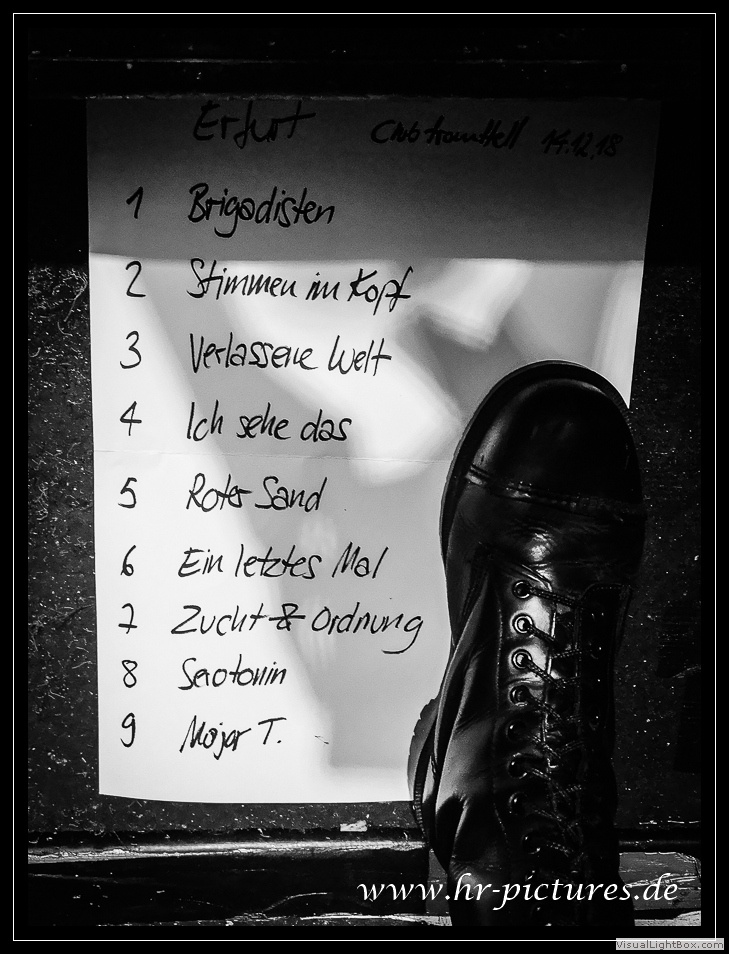 Erfurt Club from Hell 14.12.18
1 Brigadisten
2 Stimmen im Kopf
3 Verlassene Welt
4 Ich sehe das
5 Roter Sand
6 Ein letztes Mal
7 Zucht & Ordnung
8 Serotonin
9 Major T.
www.hr-pictures.de
VisualLightBox.com